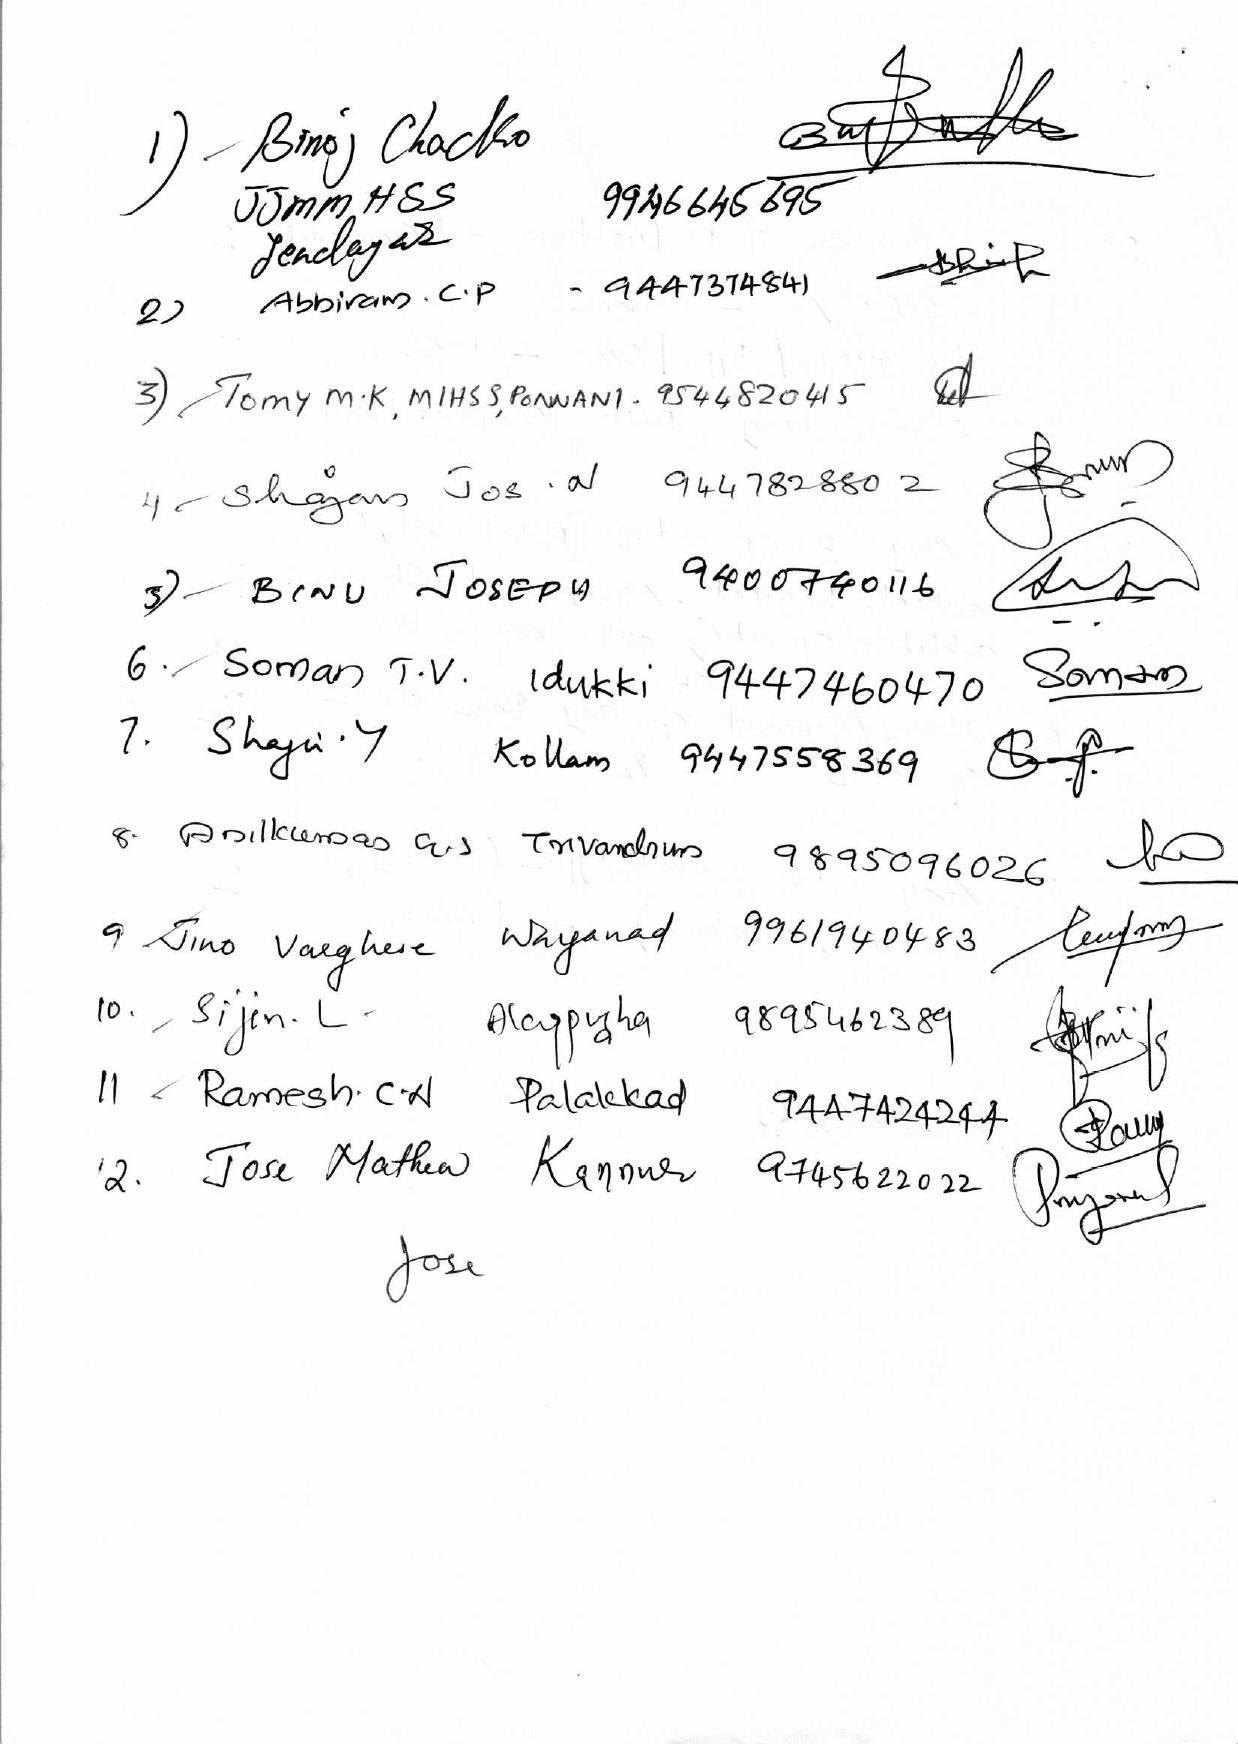 1) - Binoj Chacko
JJMM HSS 9946645695
2) Abbiram. C.P - 9447374841
3) Tomy M.K, MIHSS, PONNANI - 9544820415
4 - Shajan Jos. N 9447828802
5) - BINU JOSEPH 9400740116
6. - Soman T.V. Idukki 9447460470 Soman
7. Shaju. Y Kollam 9447558369
8. Anilkumar G.S Trivandrum 9895096026
9 Jino Varghese Wayanad 9961940483
10. Sijin. L - Alappuzha 9895462389
11 - Ramesh. C.N Palakkad 9447424244
12. Jose Mathew Kannur 9745622022
Jose